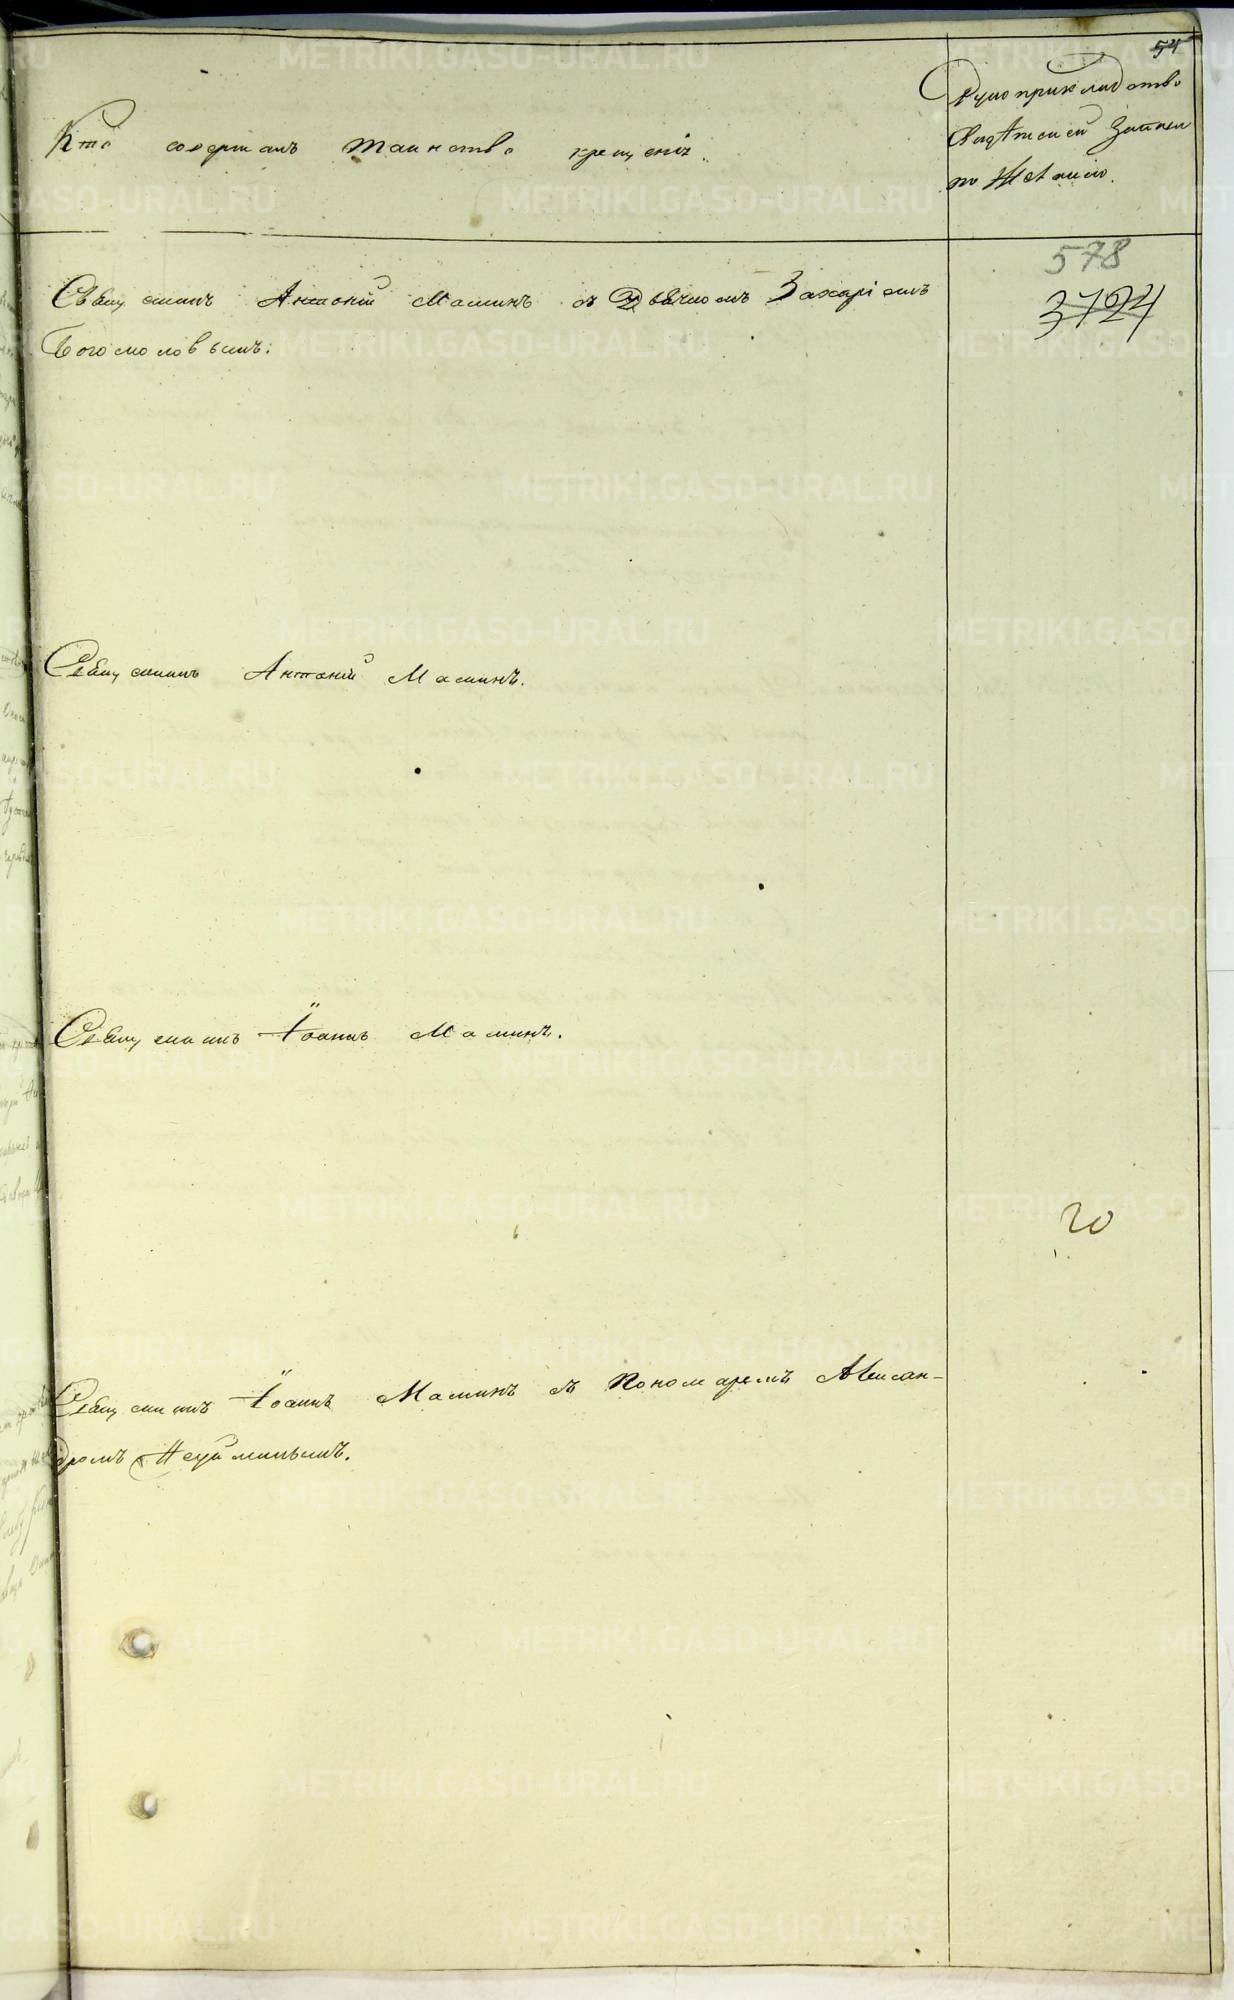 54
Кто совершалъ таинство крещенія.
Рукоприкладство
свидѣтелей записи
по желанію.
578
3724
Священникъ Антоній Маминъ съ Дьячкомъ Захаріемъ
Богомоловымъ.
Священникъ Антоній Маминъ.
Священникъ Іоаннъ Маминъ.
20
Священникъ Іоаннъ Маминъ съ Пономаремъ Алексан-
дромъ Неуйминымъ.
METRIKI.GASO-URAL.RU